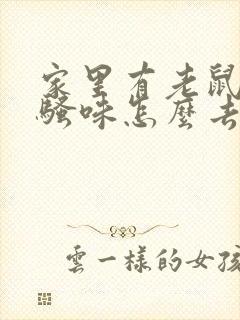 家里有老鼠
骚味怎麽去
雲一样的女孩